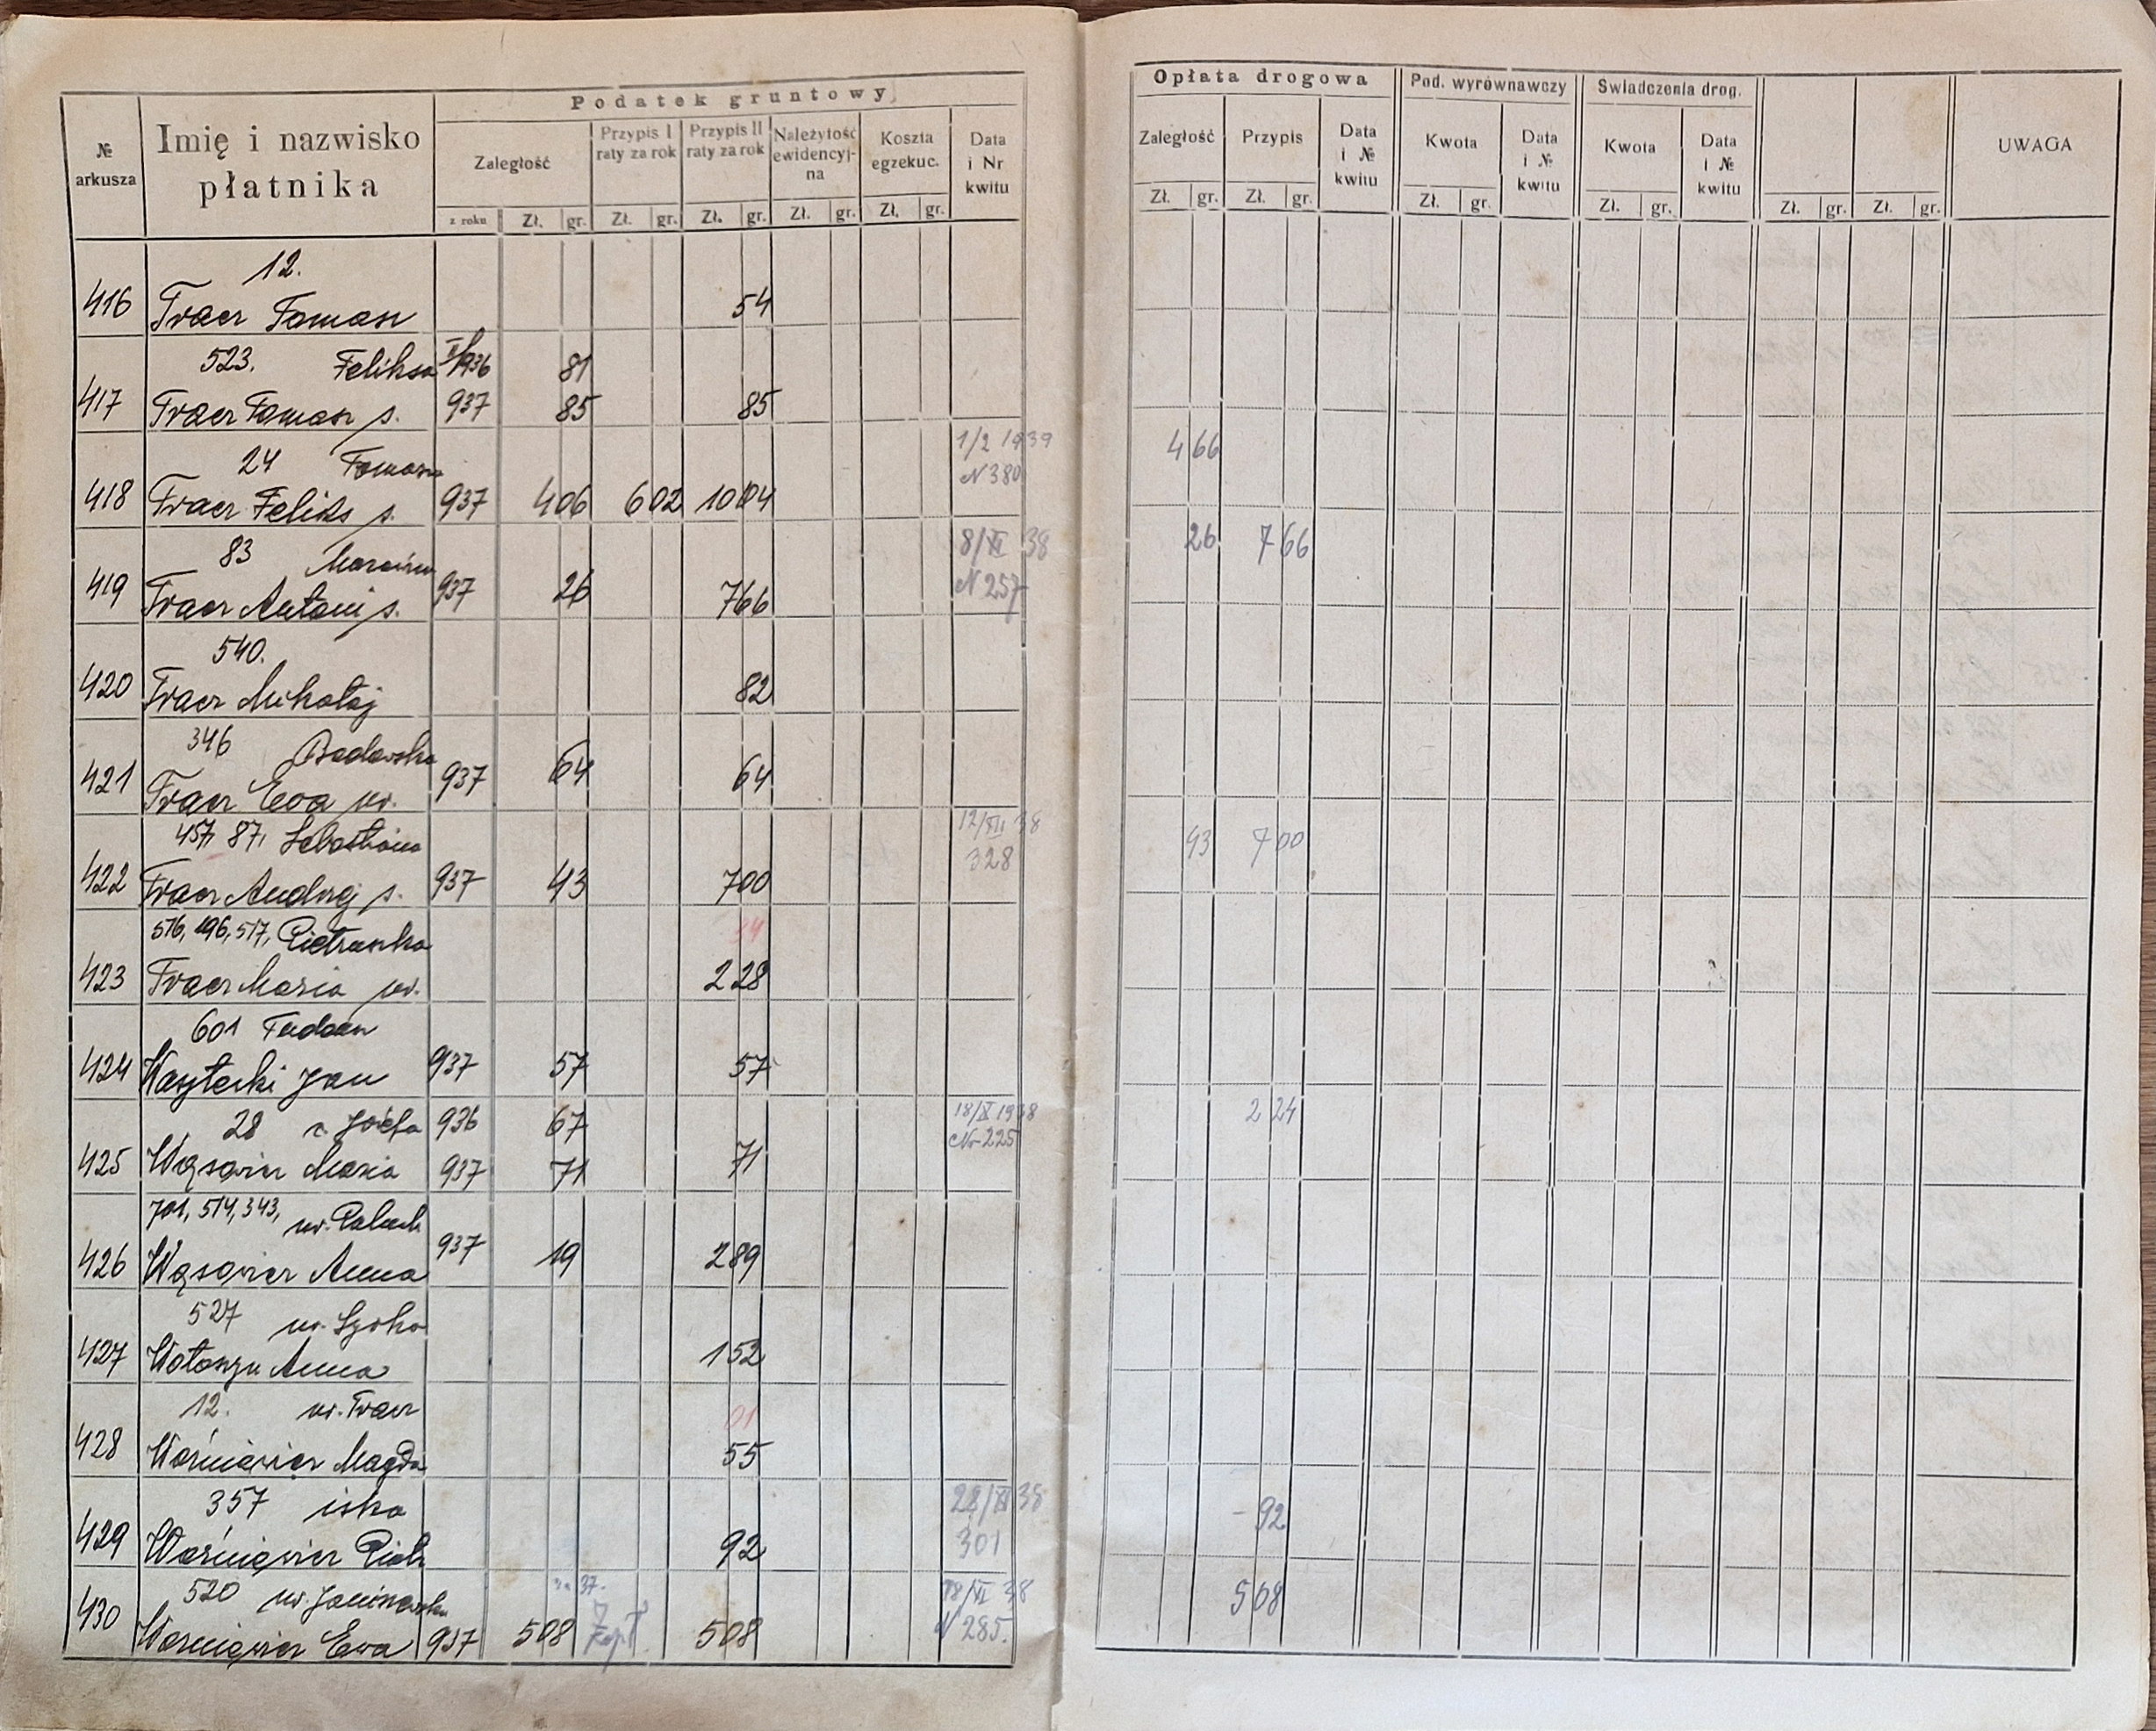 Podatek gruntowy
№ arkusza
Imię i nazwisko płatnika
Zaległość
Przypis I raty za rok
Przypis II raty za rok
Należytość ewidencyj-na
Koszta egzekuc.
Data i Nr kwitu
z roku Zł. gr. Zł. gr. Zł. gr. Zł. gr. Zł. gr.
12.
416 Tracz Tomasz 54
523. Feliksa II/1936 81
417 Tracz Tomasz s. 937 85 85
24 Tomasza 1/2 1939
N 380
418 Tracz Feliks s. 937 4 06 6 02 10 04
83 Marcina 8/XI 38
419 Tracz Antoni s. 937 26 7 66 N 257
540.
420 Tracz Mikołaj 82
346 Badowska
421 Tracz Ewa ur. 937 64 64
457, 87, Sebastiana 12/XII 38
328
422 Tracz Andrzej s. 937 43 7 00
576, 196, 517, Pietruszka 34
423 Tracz Maria ur. 2 28
601 Tadeusz
424 Jan 937 57 57
28 c. Józefa 936 67 18/X 1938
Nr 225
425 Wąsowicz Maria 937 71 71
701, 514, 343, ur.
426 Wąsowicz Anna 937 19 2 89
527 ur.
427 Wołoszyn Anna 1 52
12. ur. Tracz 01
428 Woźniewicz Magda 55
357 iska 28/XI 38
429 Woźniewicz Piotr 92 301
520 ur. Janiszewska za 37. 18/XI 38
430 Woźniewicz Ewa 937 5 08 5 08 N 285.
Opłata drogowa
Pod. wyrównawczy
Swiadczenia drog.
Zaległość
Przypis
Data i № kwitu
Kwota
Data i № kwitu
Kwota
Data i № kwitu
UWAGA
Zł. gr. Zł. gr. Zł. gr. Zł. gr. Zł. gr. Zł. gr.
4 66
26 7 66
43 7 00
2 24
- 92
5 08